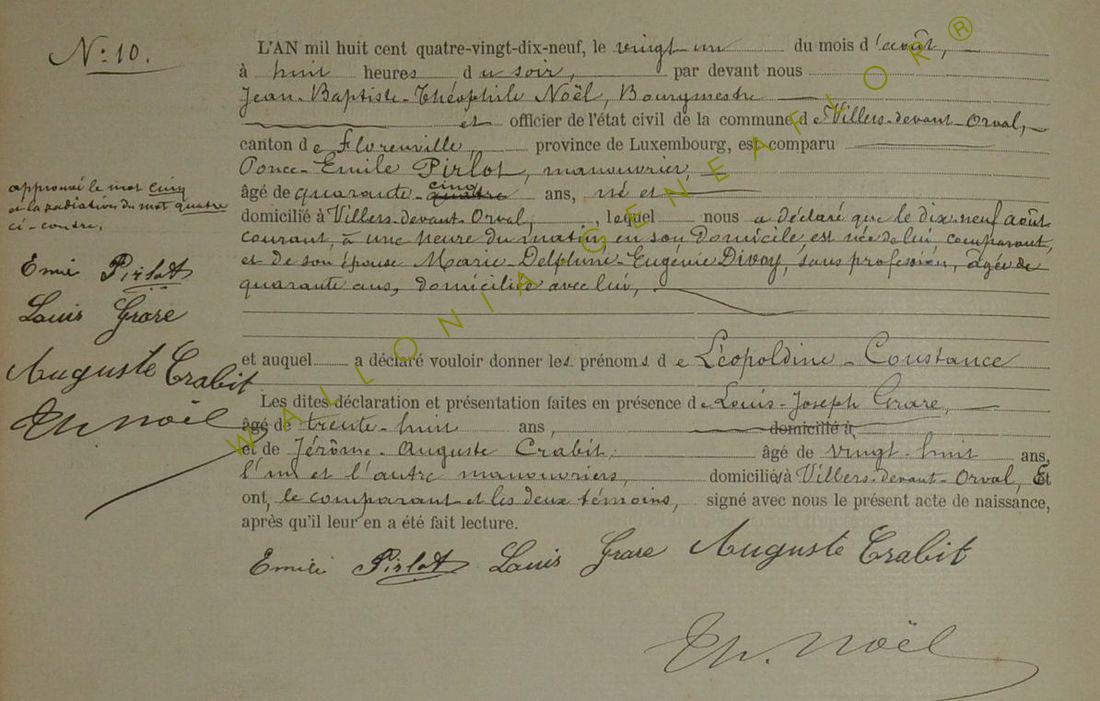 N.º 10.
L'AN mil huit cent quatre-vingt-dix-neuf, le vingt un du mois d'août,
à huit heures du soir, par devant nous
Jean-Baptiste-Théophile Noël, Bourgmestre
et officier de l'état civil de la commune de Villers-devant-Orval,
canton de Florenville, province de Luxembourg, est comparu
Ponce-Emile Pirlot, manouvrier,
âgé de quarante-cinq quatre ans, né et
domicilié à Villers-devant-Orval, lequel nous a déclaré que le dix-neuf août
courant, à une heure du matin en son domicile est née de lui, comparant,
et de son épouse Marie-Delphine-Eugénie Divoy, sans profession, âgée de
quarante ans, domiciliée avec lui,
et auquel a déclaré vouloir donner les prénoms de Léopoldine-Constance
Les dites déclaration et présentation faites en présence de Louis-Joseph Grare,
âgé de trente-huit ans, domicilié à
et de Jérôme-Auguste Crabit, âgé de vingt-huit ans,
l'un et l'autre manouvriers, domiciliés à Villers-devant-Orval, Et
ont, le comparant et les deux témoins, signé avec nous le présent acte de naissance,
après qu'il leur en a été fait lecture.
approuvé le mot cinq
et la radiation du mot quatre
ci-contre,
Emile Pirlot
Louis Grare
Auguste Crabit
Th. Noël
Emile Pirlot Louis Grare Auguste Crabit
Th. Noël
WALLONIA GENEAFLOR®